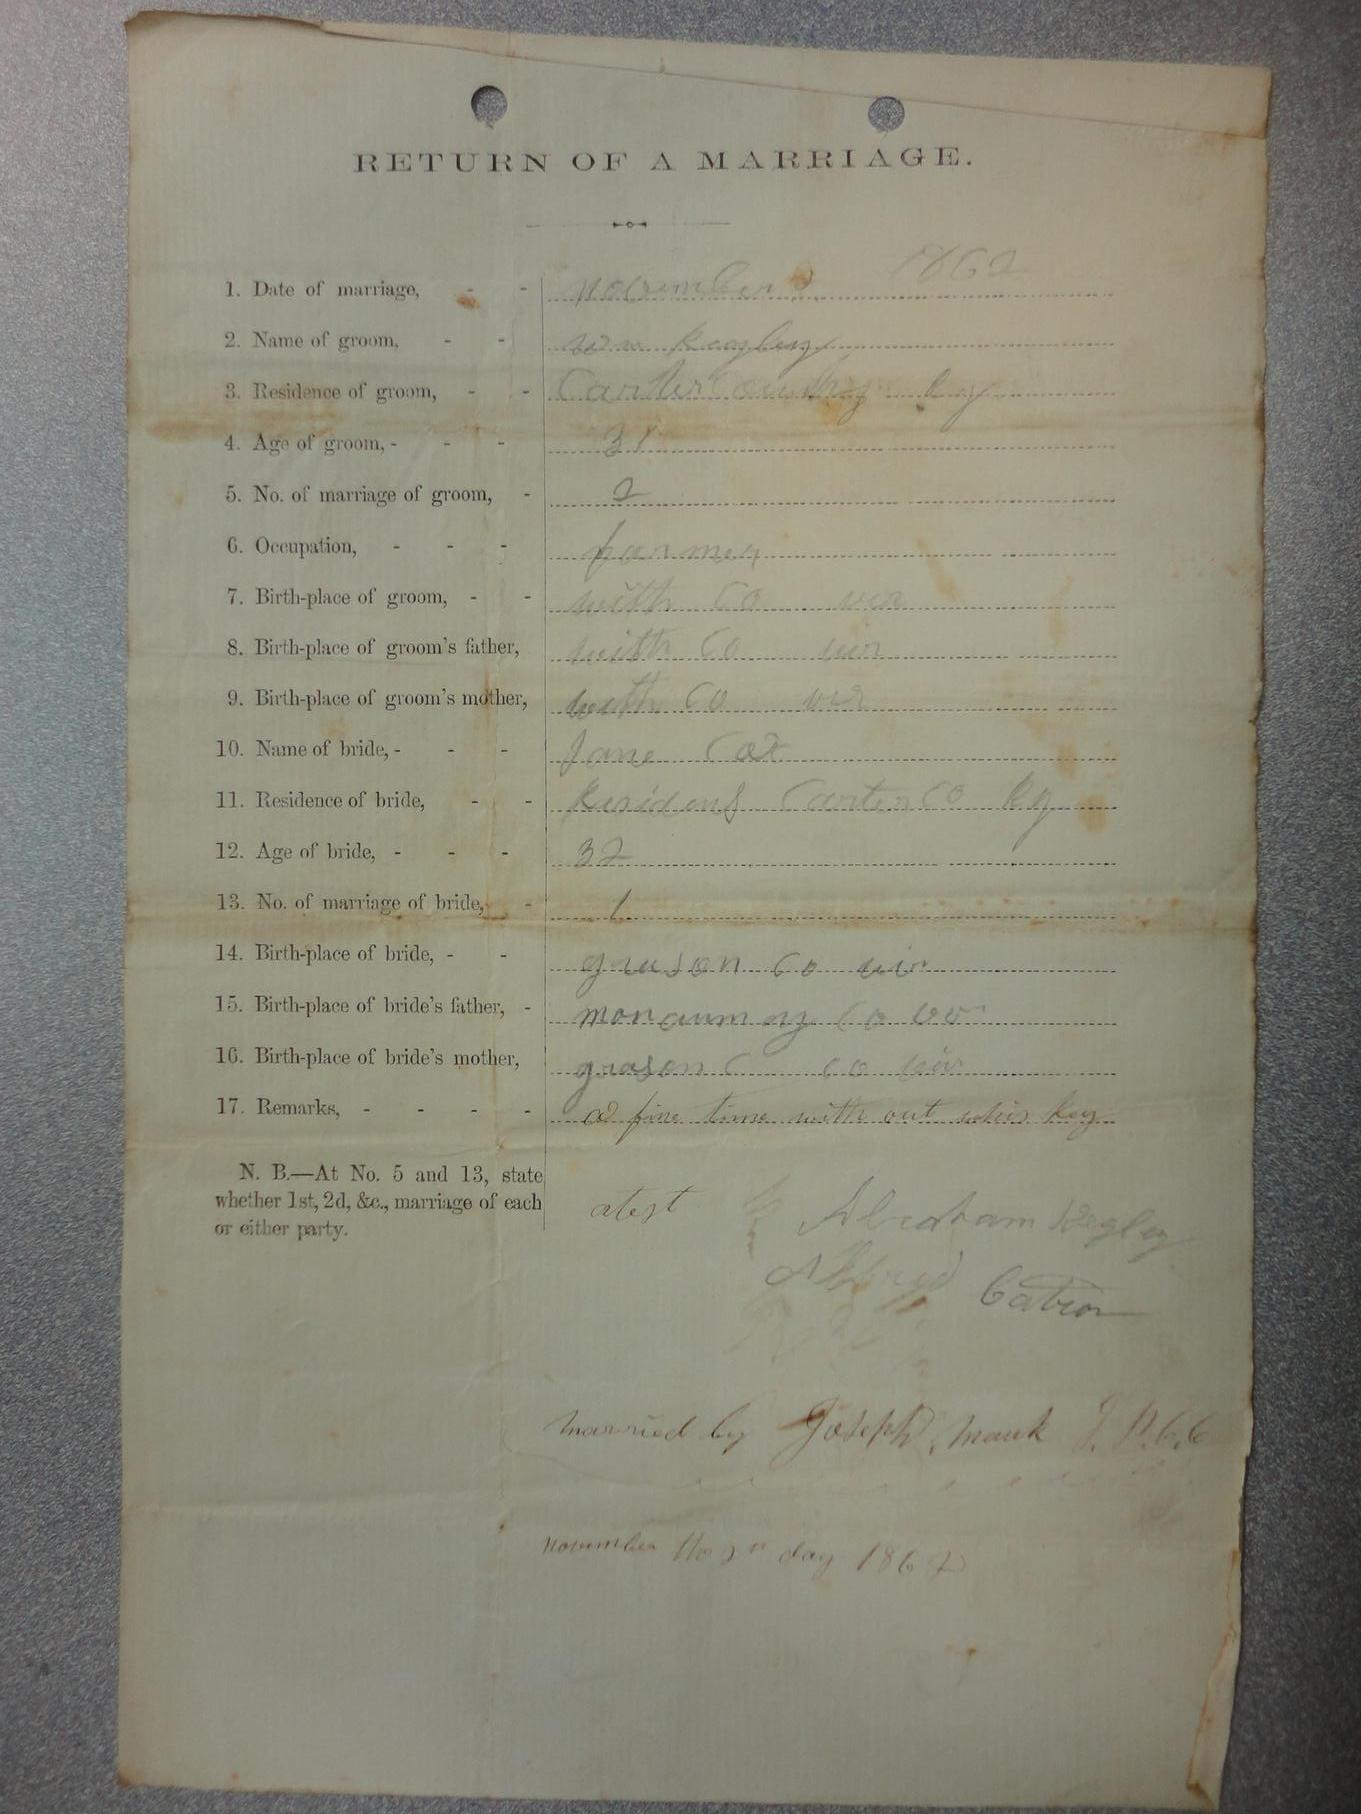 RETURN OF A MARRIAGE.
1. Date of marriage, - - november 1862
2. Name of groom, - - wm keagley
3. Residence of groom, - - Carter County ky
4. Age of groom, - - - 31
5. No. of marriage of groom, - 2
6. Occupation, - - - farmer
7. Birth-place of groom, - - with Co vir
8. Birth-place of groom's father, with Co vir
9. Birth-place of groom's mother, with Co vir
10. Name of bride, - - - Jane Cox
11. Residence of bride, - - Carter Co ky
12. Age of bride, - - - 32
13. No. of marriage of bride, - 1
14. Birth-place of bride, - - grason Co vir
15. Birth-place of bride's father, - Co
16. Birth-place of bride's mother, grason co vir
17. Remarks, - - - - a fine time with out whis key
N. B.—At No. 5 and 13, state
whether 1st, 2d, &c., marriage of each
or either party.
atest Abraham Kegley
Catron
married by Joseph Mauk J. P. C. C
november day 1862